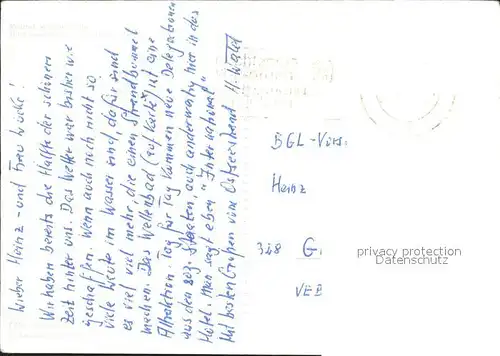 Lieber Heinz - und Frau Lücke!
Wir haben bereits die Hälfte der schönen
Zeit hinter uns. Das Wetter war bisher wie
geschaffen. Wenn auch noch nicht so
viele Leute im Wasser sind, dafür sind
es viel viel mehr, die einen Strandbummel
machen. Das Wellenbad (auf Karte) ist eine
Attraktion. Tag für Tag kommen neue Delegationen
aus den soz. Staaten, auch anderweitig hier in das
Hotel. Man sagt eben "International"
Mit besten Grüßen vom Ostseestrand H.
BGL-Vors.
Heinz
G.
VEB
privacy protection
Datenschutz